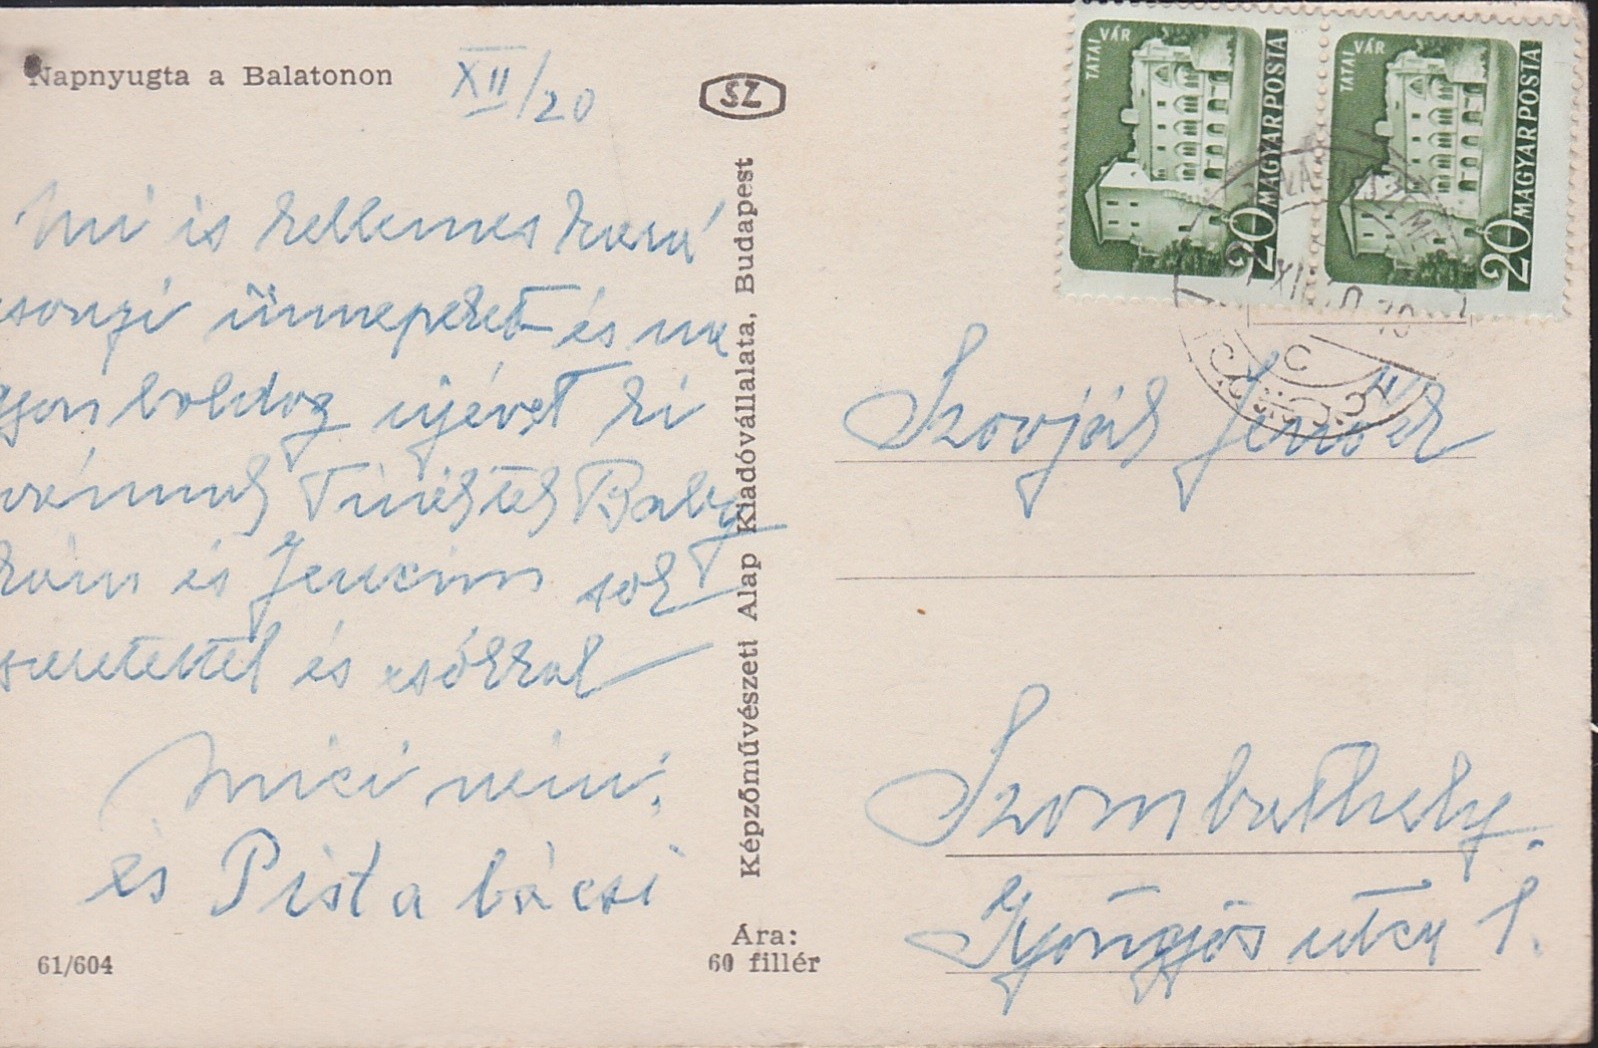 Napnyugta a Balatonon
XII/20
SZ
Mi is kellemes kará
csonyi ünnepeket és na
gyon boldog ujévet ki
vánunk Tinéktek Baby
kám és Jencim sok
szeretettel és csókkal
Mici néni
és Pista bácsi
61/604
Képzőművészeti Alap Kiadóvállalata, Budapest
Ára:
60 fillér
TATAI VÁR
20 MAGYAR POSTA
TATAI VÁR
20 MAGYAR POSTA
Szovják Jenőék
Szombathely.
Gyöngyös utca 1.